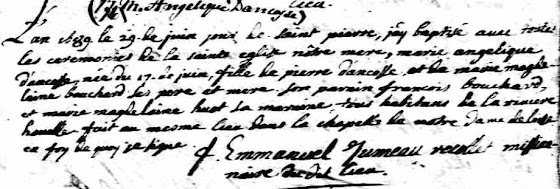 (M. Angelique Dancosse)
L'an 1689 le 29 de juin jour de saint pierre, j'ay baptisé avec toutes
les ceremonies de la sainte eglise nôtre mere, marie angelique
d'ancosse, née du 17. de juin, fille de pierre d'ancosse et de marie magde
laine bouchard ses pere et mere. son parain françois bouchard,
et marie magdelaine huot sa maraine, tous habitans de la riviere
houelle fait au mesme lieu dans la chapelle de notre dame de
en foy de quoy je signe
f. Emmanuel Jumeau recollet mission
naire du dit lieu.